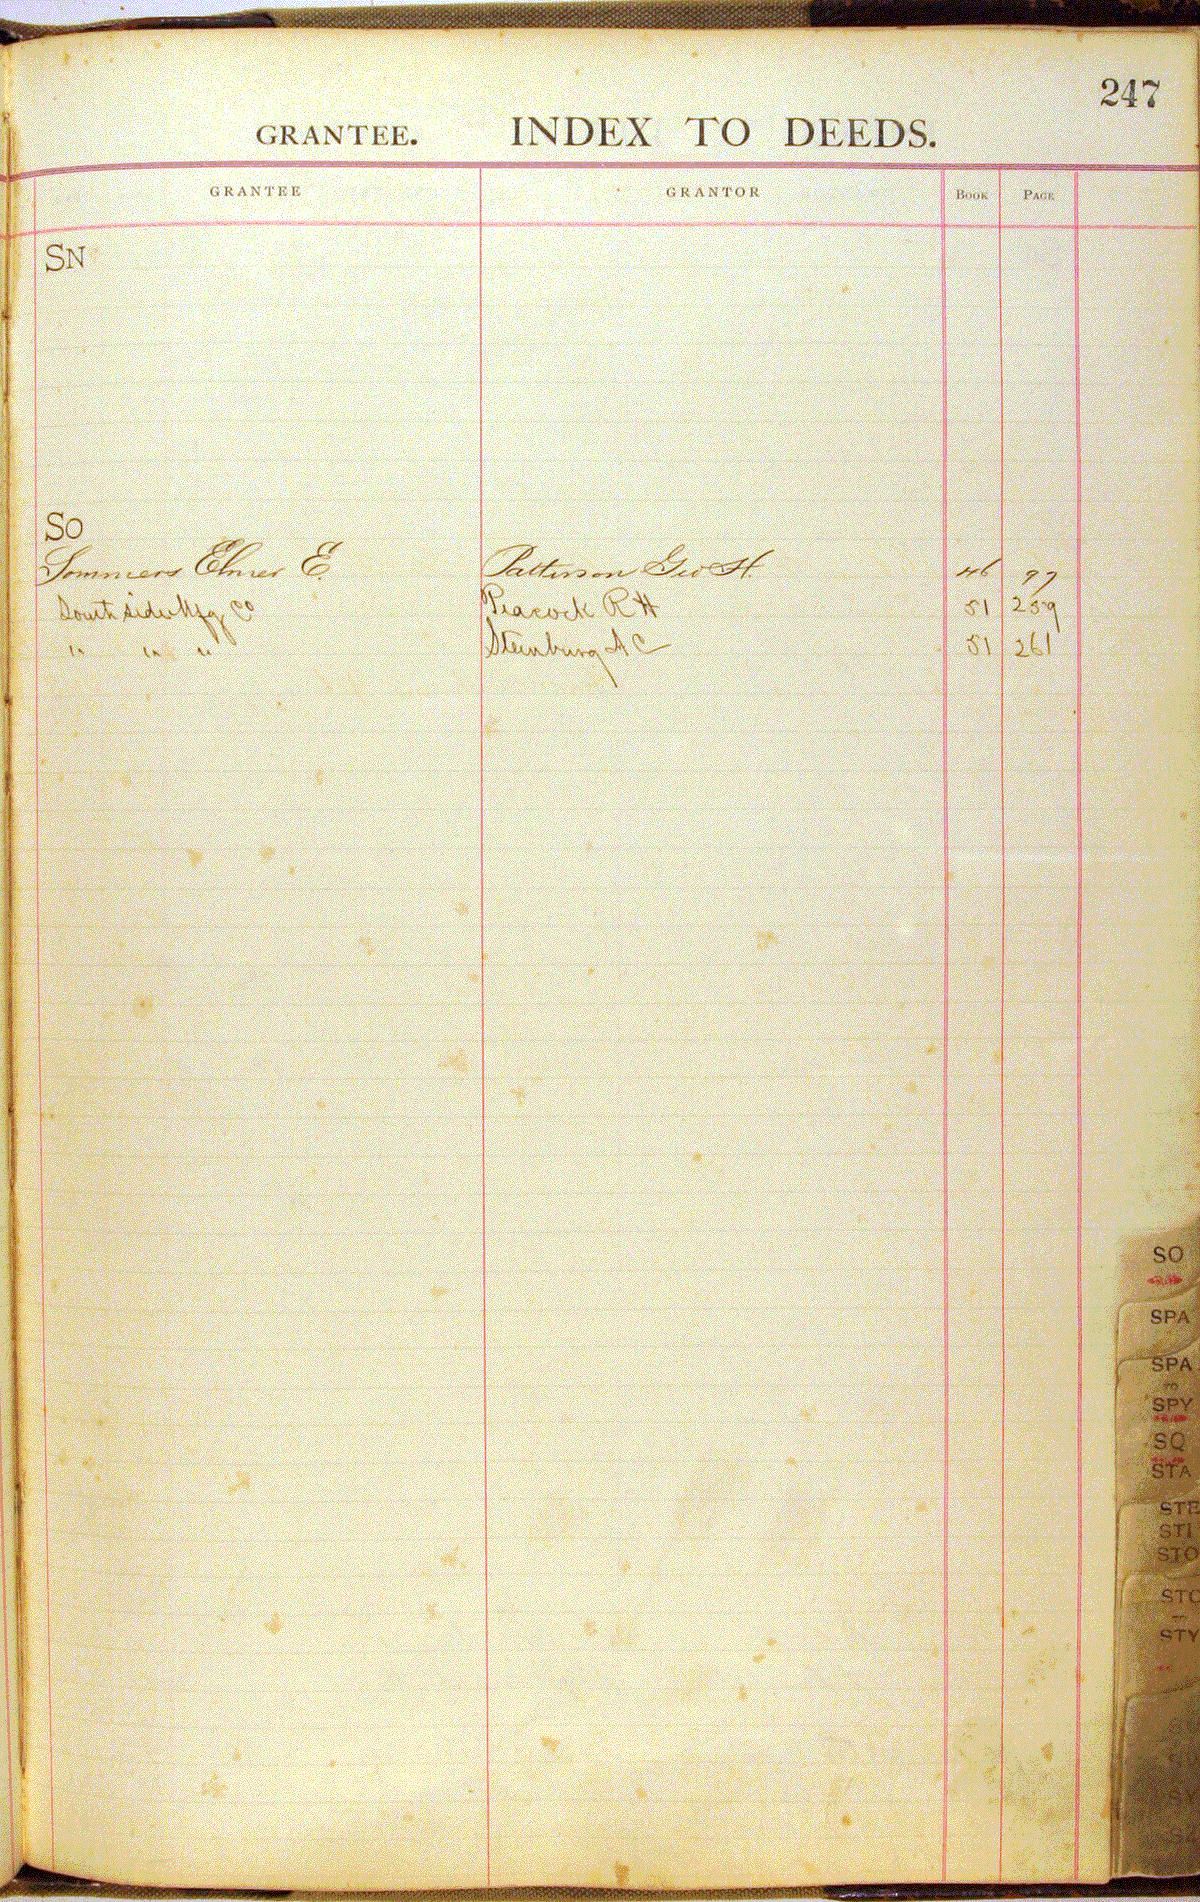 247
GRANTEE. INDEX TO DEEDS.
GRANTEE GRANTOR BOOK PAGE
SN
SO
Sommers Elmer E. Patterson Geo H. 46 97
South side Mfg Co Peacock R H 51 259
" " " Steinburg A C 51 261
SO
SPA
SPA
TO
SPY
SQ
STA
STE
STI
STO
STO
STY